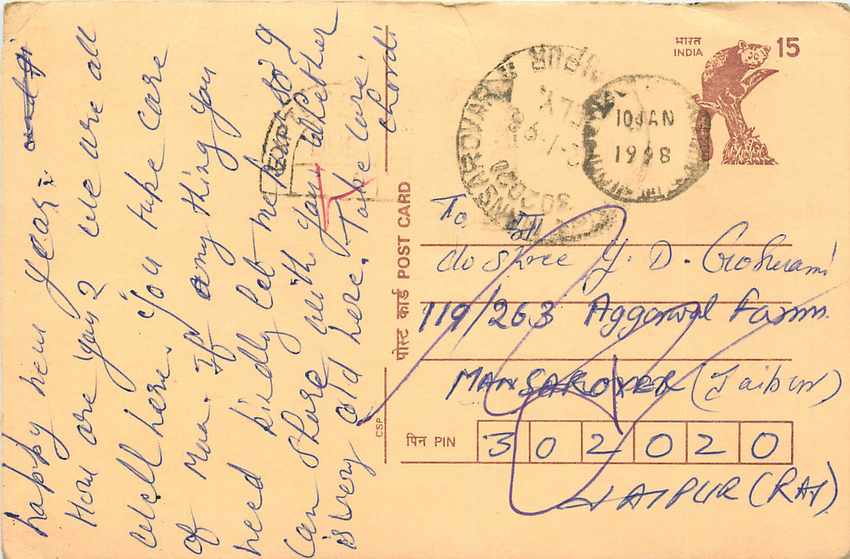 happy new year.
How are you? We are all
well here. You take care
of Maa. If any thing you
need kindly let me so I
can share with you. Whether
is very cold here. Take care.
भारत
INDIA
15
10 JAN
1998
MANSAROVAR
302020
पोस्ट कार्ड POST CARD
CSP
To,
c/o Shree Y. D. Goswami
119/263 Aggarwal Farm
MANSAROVER (Jaipur)
पिन PIN 302020
JAIPUR (RAJ)